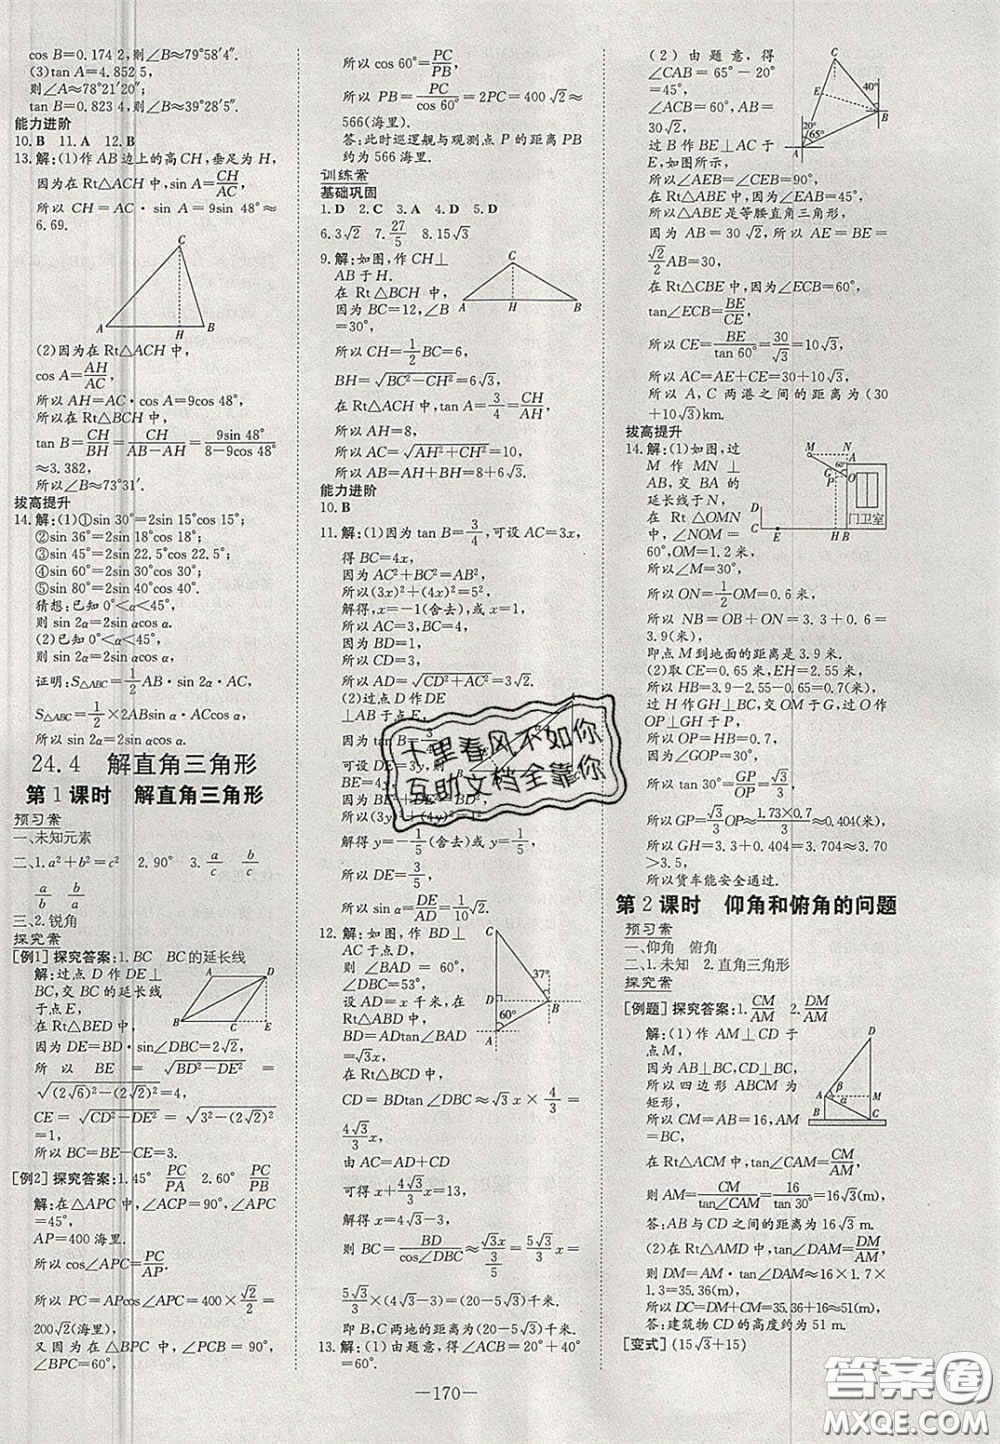 cos B=0.174 2,则∠B≈79°58′4″.
(3)tan A=4.852 5,
则∠A≈78°21′20″;
tan B=0.823 4,则∠B≈39°28′5″.
能力进阶
10.B 11.A 12.B
13.解:(1)作 AB 边上的高CH,垂足为 H,
因为在 Rt△ACH 中,sin A=CH/AC,
所以 CH=AC·sin A=9sin 48°≈
6.69.
C
A H B
(2)因为在 Rt△ACH 中,
cos A=AH/AC,
所以 AH=AC·cos A=9cos 48°,
所以在 Rt△BCH 中,
tan B=CH/BH=CH/(AB-AH)=9sin 48°/(8-9cos 48°)
≈3.382,
所以∠B≈73°31′.
拔高提升
14.解:(1)①sin 30°=2sin 15°cos 15°;
②sin 36°=2sin 18°cos 18°;
③sin 45°=2sin 22.5°cos 22.5°;
④sin 60°=2sin 30°cos 30°;
⑤sin 80°=2sin 40°cos 40°.
猜想:已知 0°<α<45°,
则 sin 2α=2sin αcos α.
(2)已知 0°<α<45°,
则 sin 2α=2sin αcos α.
证明:S△ABC=1/2 AB·sin 2α·AC,
S△ABC=1/2×2ABsin α·ACcos α,
所以 sin 2α=2sin αcos α.
24.4 解直角三角形
第 1 课时 解直角三角形
预习案
一、未知元素
二、1.a²+b²=c² 2.90° 3.a/c b/c
a/b b/a
三、2.锐角
探究案
[例1] 探究答案:1.BC BC 的延长线
解:过点 D 作 DE⊥
BC,交 BC 的延长线
于点 E,
A D
B C E
在 Rt△BED 中,
因为 DE=BD·sin∠DBC=2√2,
所以 BE=√(BD²-DE²)=
√((2√6)²-(2√2)²)=4,
CE=√(CD²-DE²)=√(3²-(2√2)²)
=1,
所以 BC=BE-CE=3.
[例2] 探究答案:1.45° PC/PA 2.60° PC/PB
解:在△APC 中,∠ACP=90°,∠APC
=45°,
AP=400 海里.
所以 cos∠APC=PC/AP,
所以 PC=AP·cos∠APC=400×√2/2=
200√2(海里).
又因为在△BPC 中,∠BCP=90°,
∠BPC=60°,
所以 cos 60°=PC/PB,
所以 PB=PC/cos 60°=2PC=400√2≈
566(海里).
答:此时巡逻舰与观测点 P 的距离 PB
约为 566 海里.
训练案
基础巩固
1.D 2.C 3.A 4.D 5.D
6.3√2 7.27/5 8.15√3
9.解:如图,作 CH⊥
AB 于 H.
在 Rt△BCH 中,
因为 BC=12,∠B
=30°,
C
A H B
所以 CH=1/2 BC=6,
BH=√(BC²-CH²)=6√3,
在 Rt△ACH 中,tan A=3/4=CH/AH,
所以 AH=8,
所以 AC=√(AH²+CH²)=10,
所以 AB=AH+BH=8+6√3.
能力进阶
10.B
11.解:(1)因为 tan B=3/4,可设 AC=3x,
得 BC=4x,
因为 AC²+BC²=AB²,
所以(3x)²+(4x)²=5²,
解得,x=-1(舍去),或 x=1,
所以 AC=3,BC=4,
因为 BD=1,
所以 CD=3,
所以 AD=√(CD²+AC²)=3√2.
(2)过点 D 作 DE
⊥AB 于点 E,
所以 sin α=DE/AD=√2/10.
12.解:如图,作 BD⊥
AC 于点 D.
则∠BAD=60°,
∠DBC=53°,
设 AD=x 千米,在
Rt△ABD 中,
BD=ADtan∠BAD=
√3x,
在 Rt△BCD 中,
C
37°
D B
60°
A
CD=BDtan∠DBC≈√3x×4/3=
4√3/3 x,
由 AC=AD+CD
可得 x+4√3/3 x=13,
解得 x=4√3-3,
则 BC=BD/cos∠DBC≈√3x/(3/5)=5√3/3 x=
5√3/3×(4√3-3)=(20-5√3)千米.
即 B,C 两地的距离约为(20-5√3)千米.
13.解:(1)由题意,得∠ACB=20°+40°
=60°;
(2)由题意,得
∠CAB=65°-20°
=45°,
∠ACB=60°,AB=
30√2,
过 B 作 BE⊥AC 于 E,
如图所示,
C
40°
E
B
20°
65°
A
所以∠AEB=∠CEB=90°,
在 Rt△ABE 中,因为∠EAB=45°,
所以△ABE 是等腰直角三角形,
因为 AB=30√2,所以 AE=BE=
√2/2 AB=30,
在 Rt△CBE 中,因为∠ECB=60°,
tan∠ECB=BE/CE,
所以 CE=BE/tan 60°=30/√3=10√3,
所以 AC=AE+CE=30+10√3,
所以 A,C 两港之间的距离为(30
+10√3)km.
拔高提升
14.解:(1)如图,过
M 作 MN⊥
AB,交 BA 的
延长线于 N,
在 Rt△OMN
中,∠NOM=
60°,OM=1.2 米,
M N
A
60°
G O
P
D
C E H B
门卫室
所以∠M=30°,
所以 ON=1/2 OM=0.6 米,
所以 NB=OB+ON=3.3+0.6=
3.9(米).
即点 M 到地面的距离是 3.9 米.
(2)取 CE=0.65 米,EH=2.55 米,
所以 HB=3.9-2.55-0.65=0.7(米),
过 H 作 GH⊥BC,交 OM 于 G,过 O 作
OP⊥GH 于 P,
因为∠GOP=30°,
所以 tan 30°=GP/OP=√3/3,
所以 GP=√3/3 OP≈1.73×0.7/3≈0.404(米),
所以 GH=3.3+0.404=3.704≈3.70
>3.5,
所以货车能安全通过.
第 2 课时 仰角和俯角的问题
预习案
一、仰角 俯角
二、1.未知 2.直角三角形
探究案
[例题] 探究答案:1.CM/AM 2.DM/AM
解:(1)作 AM⊥CD 于
点 M,
因为 AB⊥BC,CD⊥BC,
所以四边形 ABCM 为
矩形,
所以 CM=AB=16,AM
=BC,
D
A β M
α
B C
在 Rt△ACM 中,tan∠CAM=
CM/AM,
则 AM=CM/tan∠CAM=16/tan 30°=16√3(m).
答:AB 与 CD 之间的距离为 16√3 m.
(2)在 Rt△AMD 中,tan∠DAM=DM/AM,
则 DM=AM·tan∠DAM≈16×1.7×
1.3=35.36(m),
所以 DC=DM+CM=35.36+16≈51(m).
答:建筑物 CD 的高度约为 51 m.
[变式] (15√3+15)
—170—
十里春风不如你
互助文档全靠你
答案圈
MXQE.COM